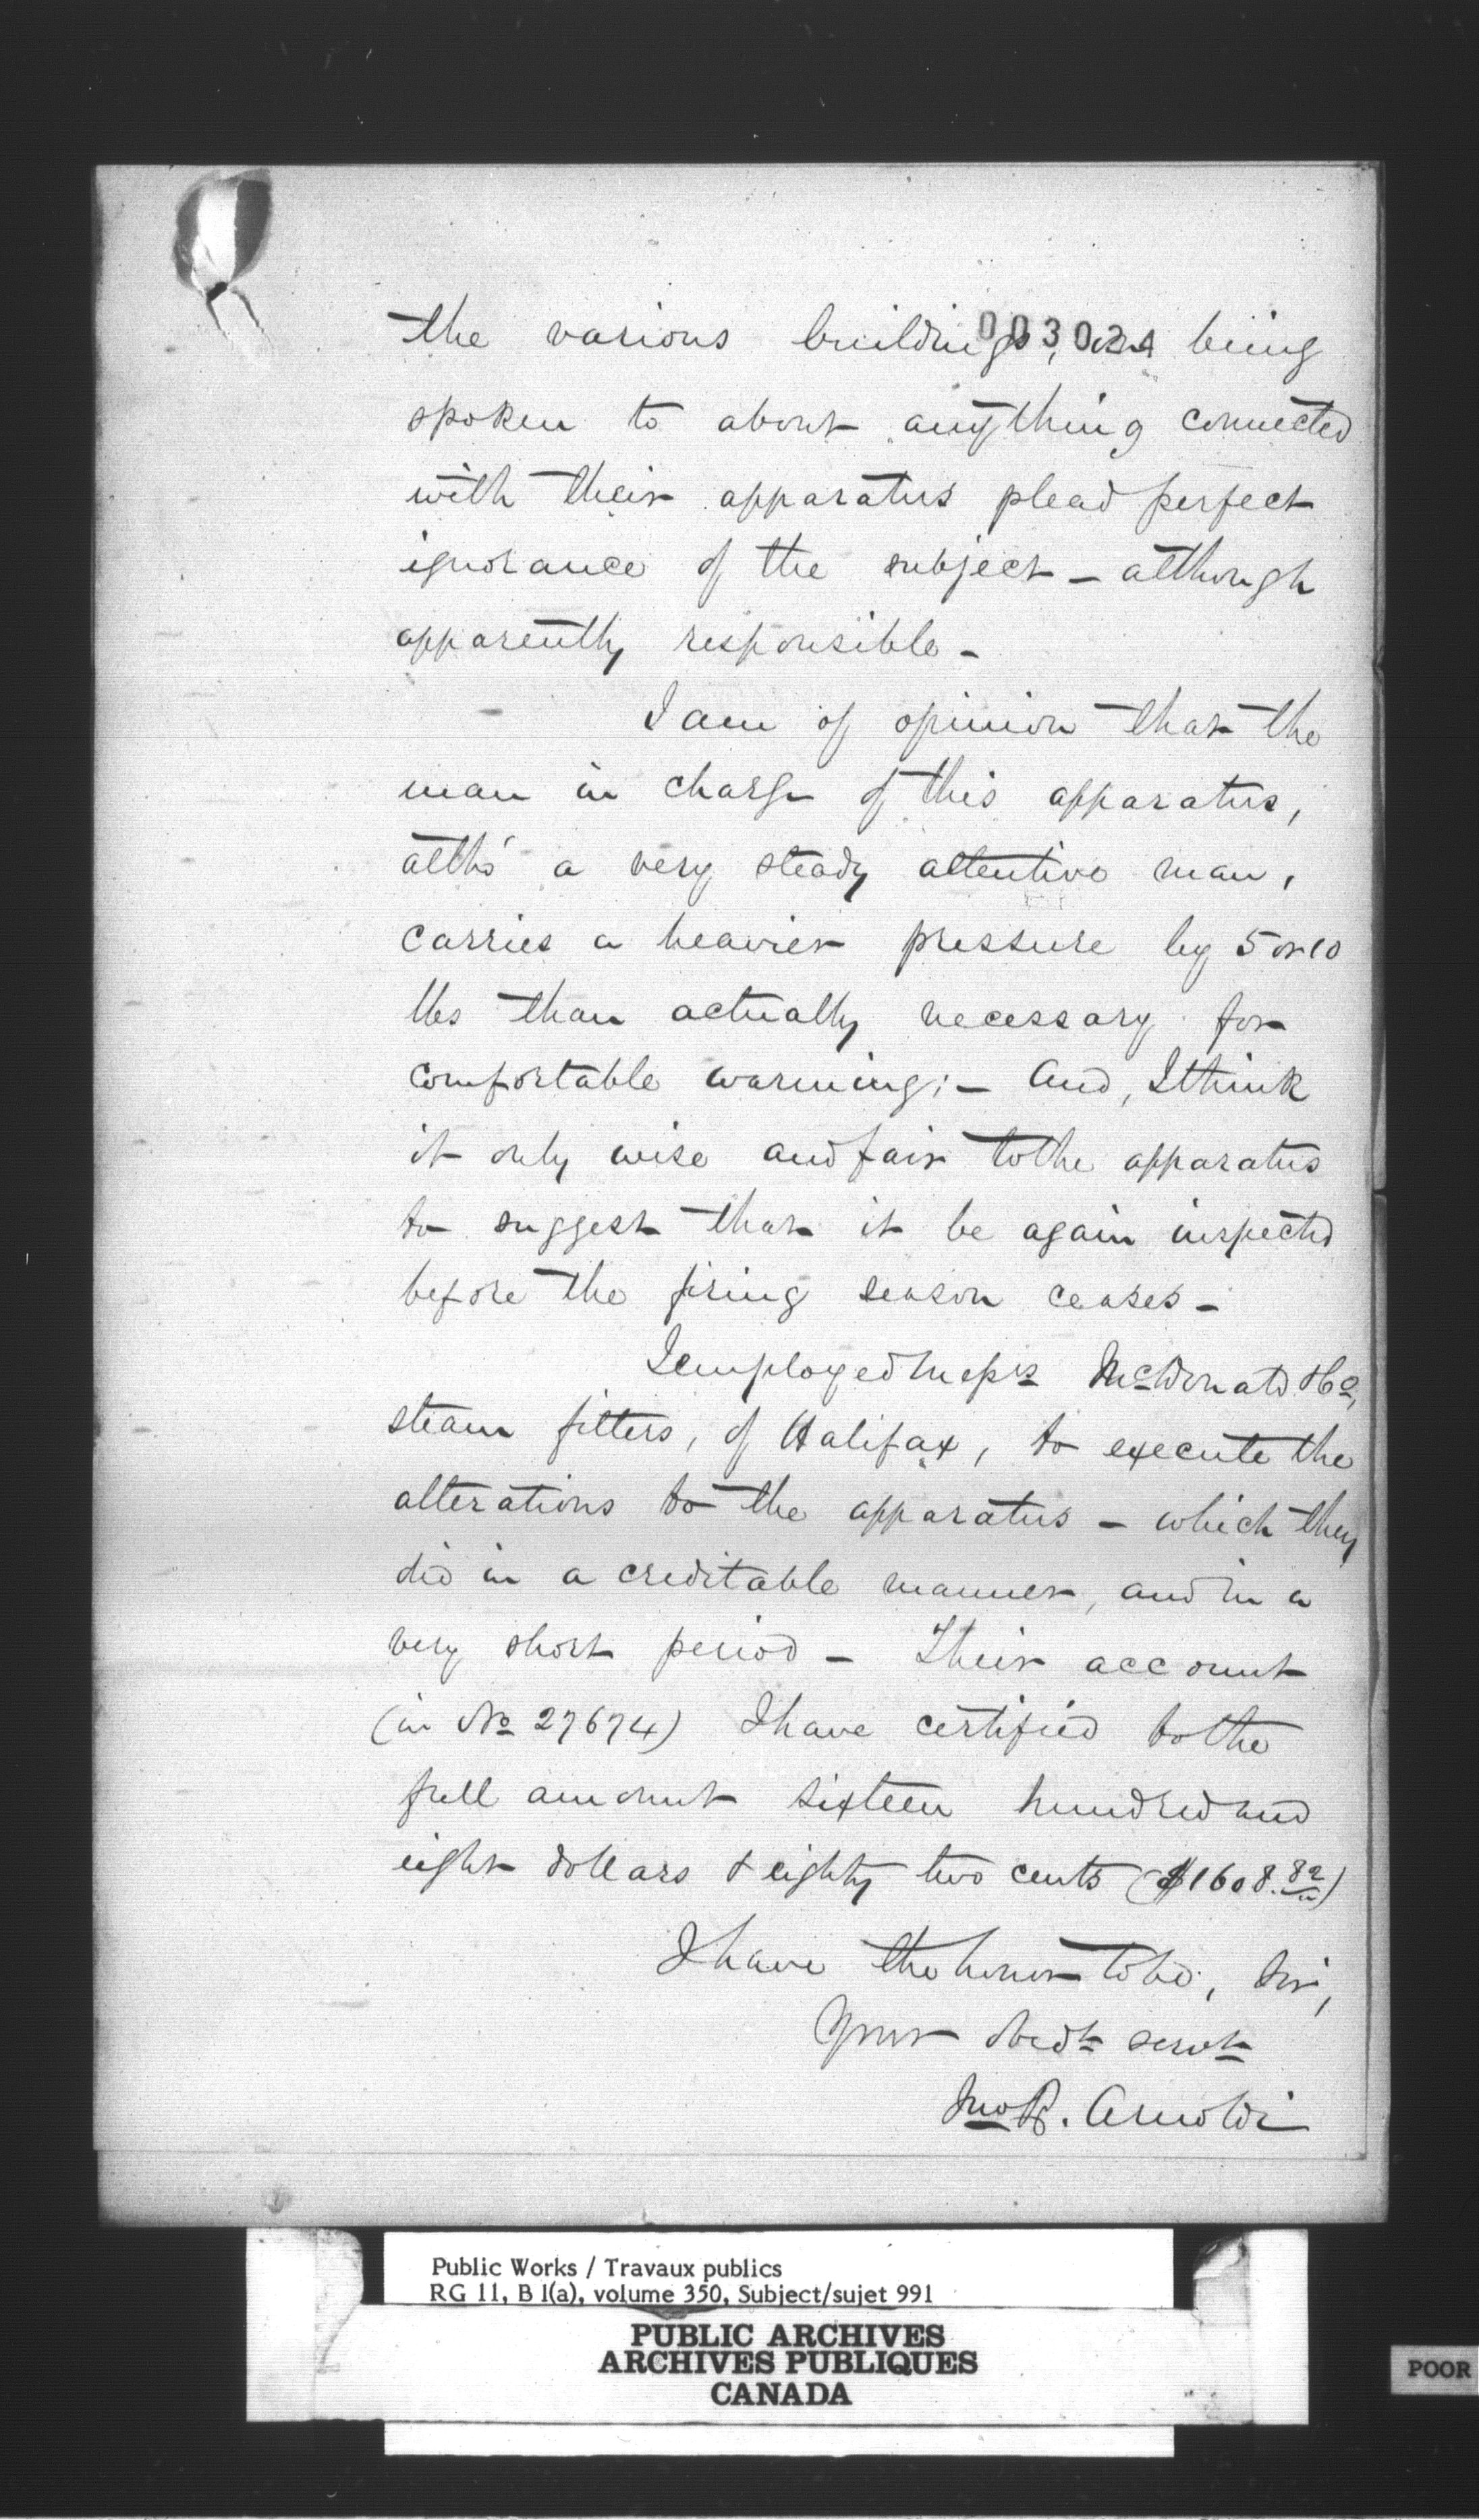 the various buildings, on being
003024
spoken to about anything connected
with their apparatus plead perfect
ignorance of the subject - although
apparently responsible -
I am of opinion that the
man in charge of this apparatus,
altho' a very steady attentive man,
carries a heavier pressure by 5 or 10
lbs than actually necessary for
comfortable warming; - And, I think
it only wise and fair to the apparatus
to suggest that it be again inspected
before the firing season ceases -
I employed Messrs McDonald & Co,
steam fitters, of Halifax, to execute the
alterations to the apparatus - which they
did in a creditable manner, and in a
very short period - Their account
(in No 27674) I have certified to the
full amount sixteen hundred and
eight dollars & eighty two cents ($1608.82)
I have the honor to be, Sir,
Your obedt servt
Jno R. Arnoldi
Public Works / Travaux publics
RG 11, B 1(a), volume 350, Subject/sujet 991
PUBLIC ARCHIVES
ARCHIVES PUBLIQUES
CANADA
POOR